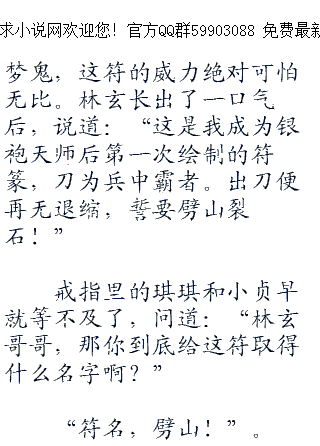 求小说网欢迎您！官方QQ群59903088 免费最新
梦鬼，这符的威力绝对可怕
无比。林玄长出了一口气
后，说道：“这是我成为银
袍天师后第一次绘制的符
篆，刀为兵中霸者。出刀便
再无退缩，誓要劈山裂
石！”
戒指里的琪琪和小贞早
就等不及了，问道：“林玄
哥哥，那你到底给这符取得
什么名字啊？”
“符名，劈山！”。